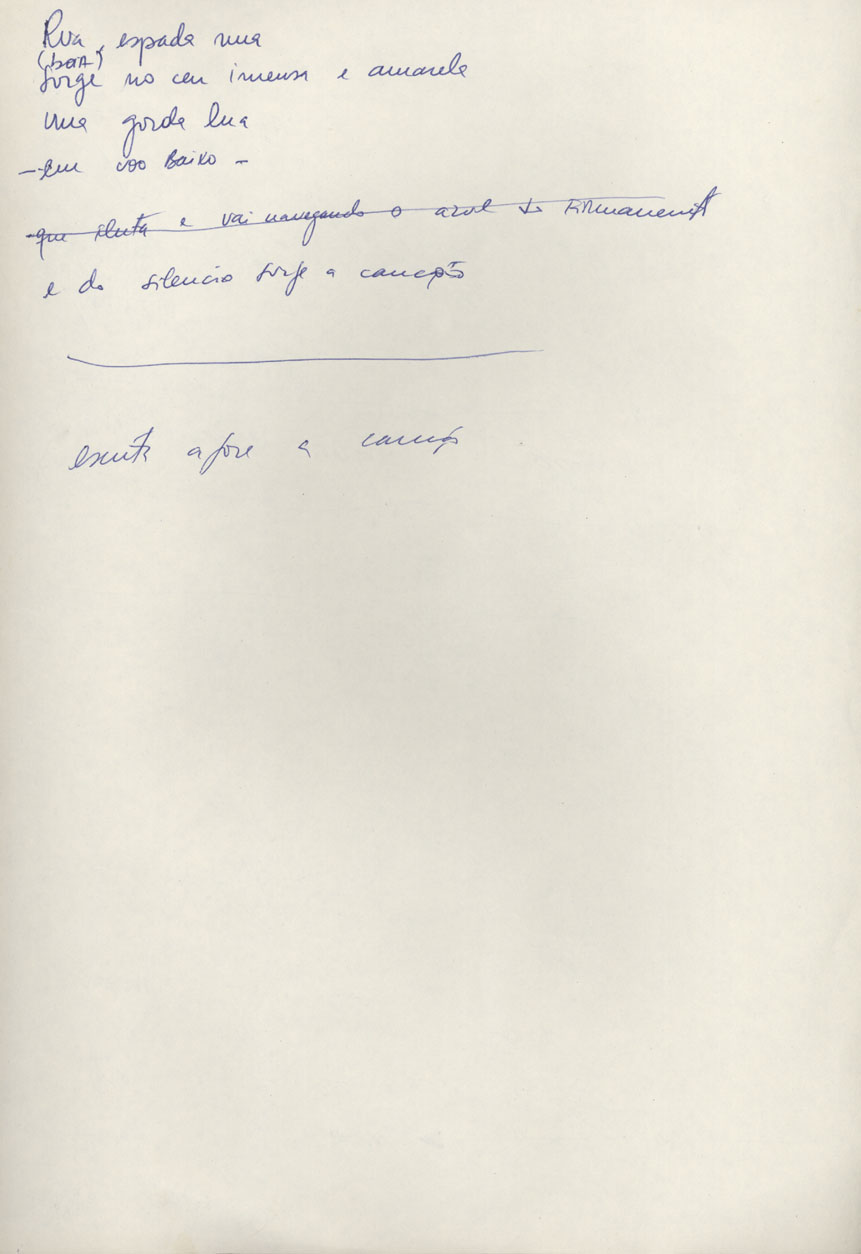 Rua, espada nua
(boia)
surge no ceu imensa e amarela
uma gorda lua
- em voo Baixo -
e vai navegando o azul do Firmamento
e do silencio surge a canção
escuta a